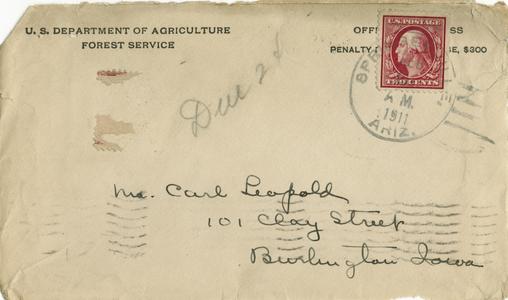 U. S. DEPARTMENT OF AGRICULTURE
FOREST SERVICE
PENALTY $300
U.S. POSTAGE
TWO CENTS
A.M.
1911
ARIZ.
Due 2¢
Mr. Carl Leopold
101 Clay Street
Burlington Iowa